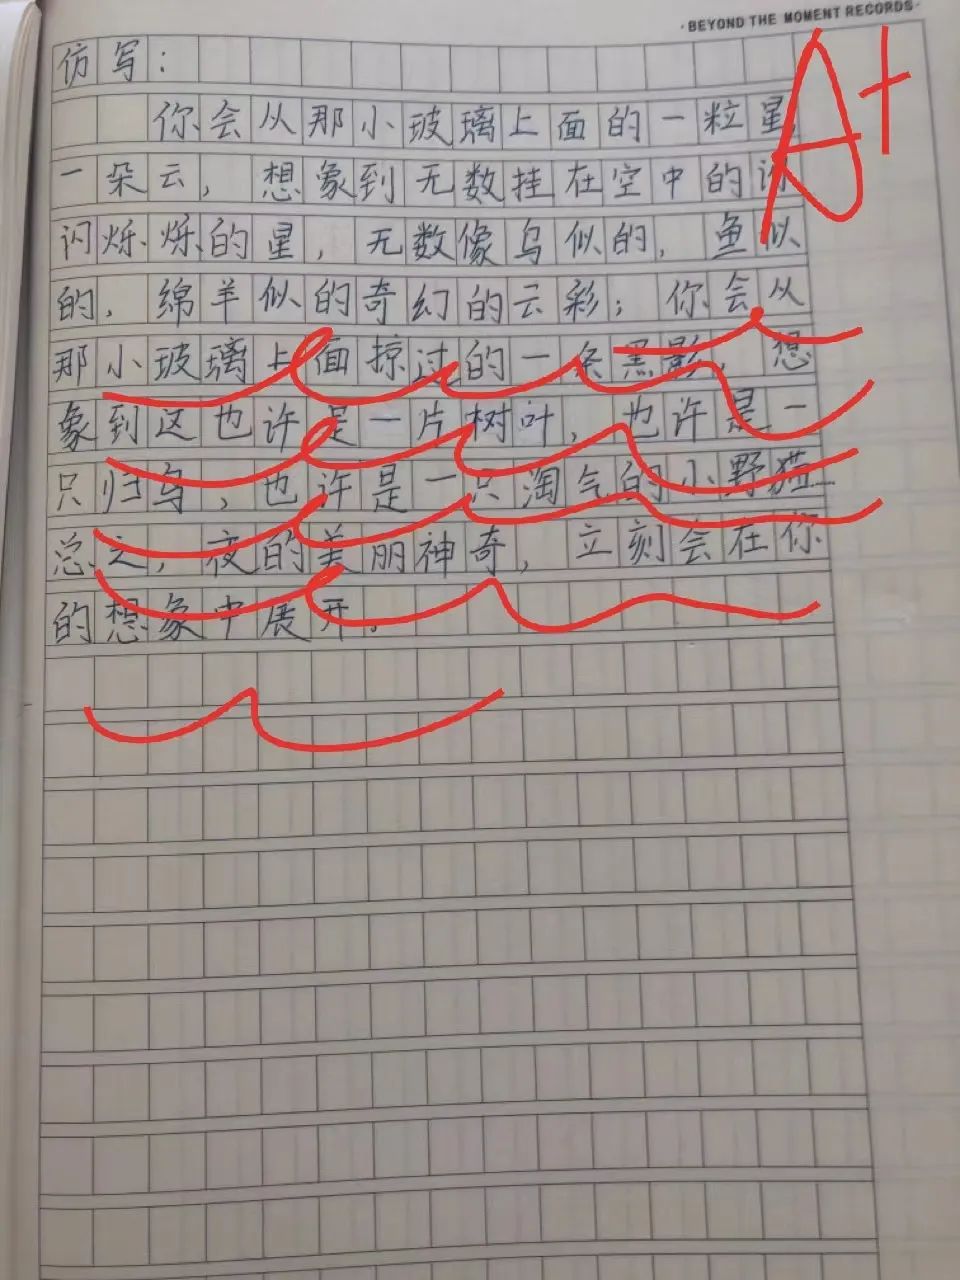 ·BEYOND THE MOMENT RECORDS·
A+
仿写：
你会从那小玻璃上面的一粒星，
一朵云，想象到无数挂在空中的
闪烁烁的星，无数像鸟似的，鱼似
的，绵羊似的奇幻的云彩；你会从
那小玻璃上面掠过的一条黑影，想
象到这也许是一片树叶，也许是一
只归鸟，也许是一只淘气的小野猫…
总之，夜的美丽神奇，立刻会在你
的想象中展开。